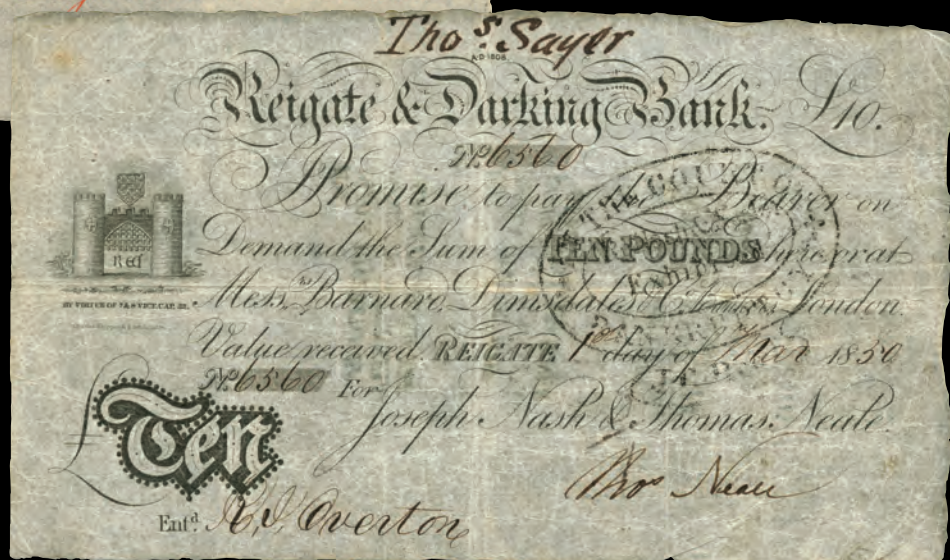 Tho.s Sayer
A.D 1808
Reigate & Darking Bank. £10.
No. 6560
I Promise to pay the Bearer on
Demand the Sum of TEN POUNDS here or at
Mess.rs Barnard, Dimsdale & Co. Bankers London.
REI
BY VIRTUE OF 7 & 8 VICT. CAP. 32.
Value received. REIGATE 1st day of Mar 1850
No. 6560 For
Joseph Nash & Thomas Neale.
£ Ten
Thos Neale
Ent.d R. J. Overton
THE COURT OF
Exhibit